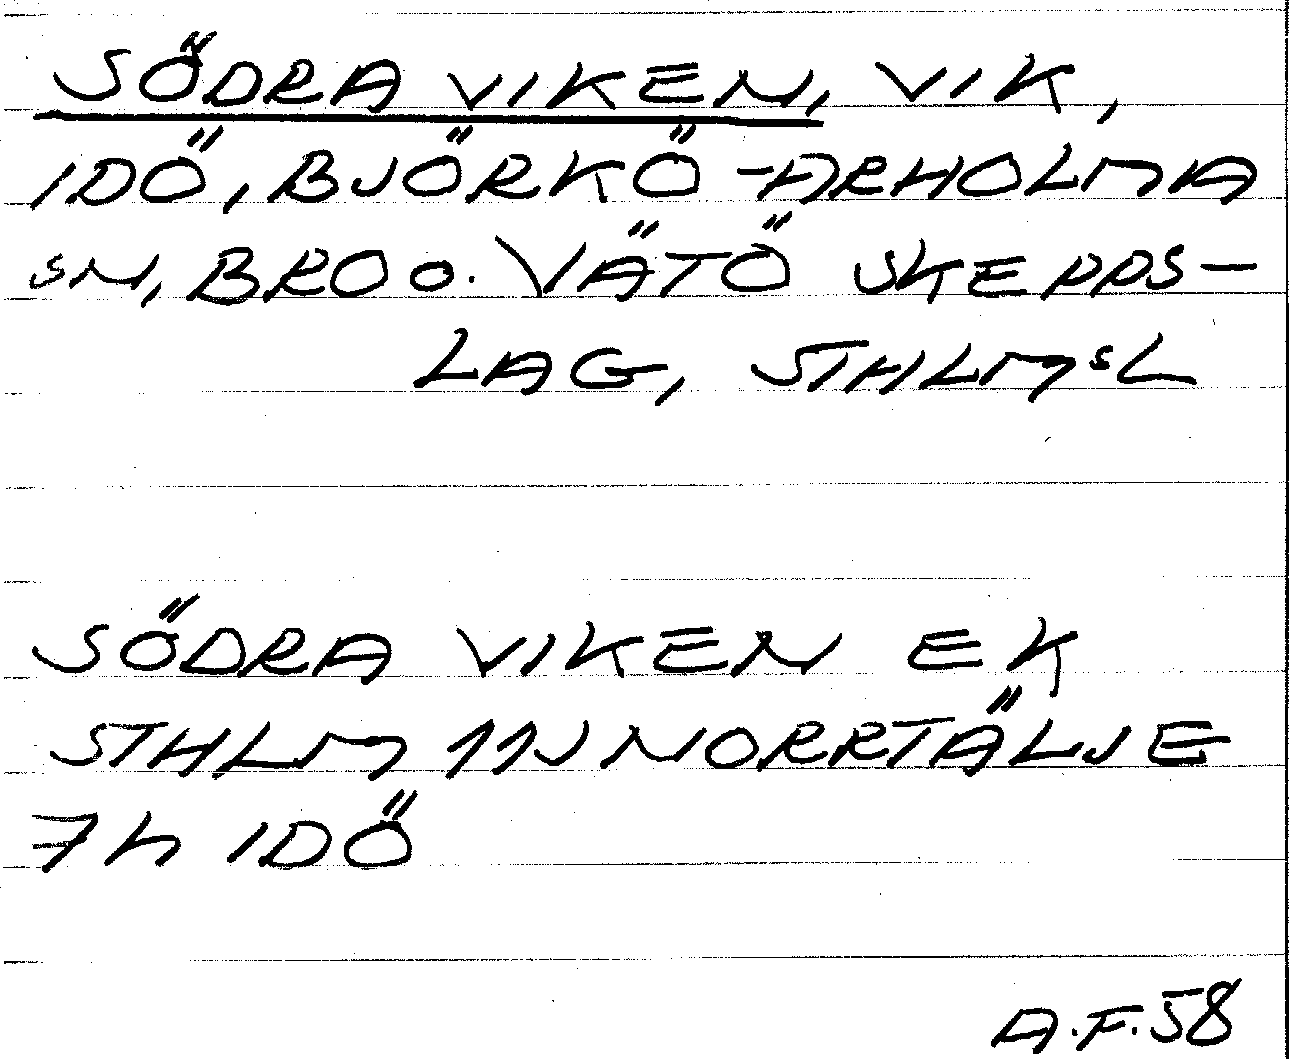 SÖDRA VIKEN, VIK,
IDÖ, BJÖRKÖ-ARHOLMA
SN, BRO O. VÄTÖ SKEPPS-
LAG, STHLMSL
SÖDRA VIKEN EK
STHLM 11J NORRTÄLJE
7h IDÖ
A.F.58